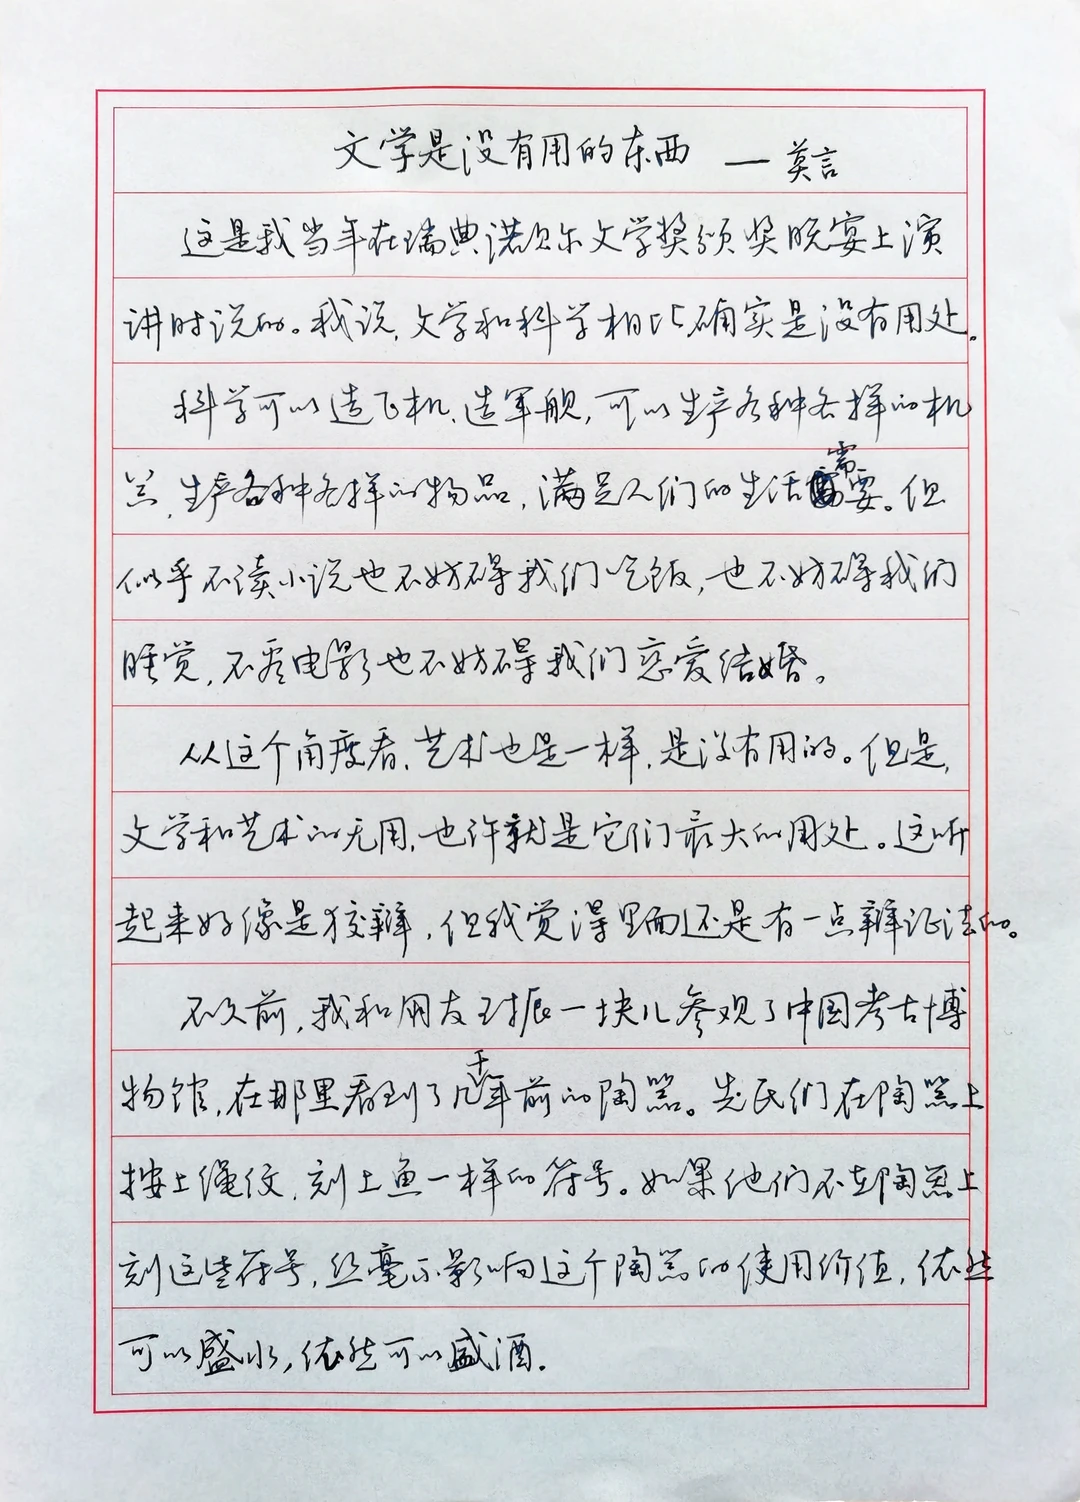 文学是没有用的东西 — 莫言
这是我当年在瑞典诺贝尔文学奖颁奖晚宴上演
讲时说的。我说,文学和科学相比确实是没有用处。
科学可以造飞机、造军舰,可以生产各种各样的机
器,生产各种各样的物品,满足人们的生活需要。但
似乎不读小说也不妨碍我们吃饭,也不妨碍我们
睡觉,不看电影也不妨碍我们恋爱结婚。
从这个角度看,艺术也是一样,是没有用的。但是,
文学和艺术的无用,也许就是它们最大的用处。这听
起来好像是狡辩,但我觉得里面还是有一点辩证法的。
不久前,我和朋友王振一块儿参观了中国考古博
物馆,在那里看到了几千年前的陶器。先民们在陶器上
按上绳纹,刻上鱼一样的符号。如果他们不在陶器上
刻这些符号,丝毫不影响这个陶器的使用价值,依然
可以盛水,依然可以盛酒.